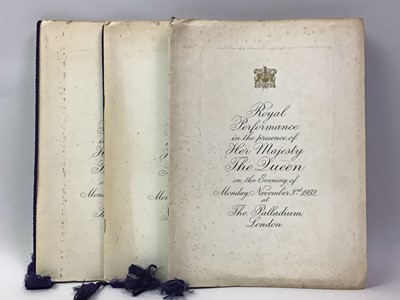 Royal
Performance
in the presence of
Her Majesty
The Queen
on the Evening of
Monday, November 3rd 1952
at
The Palladium
London